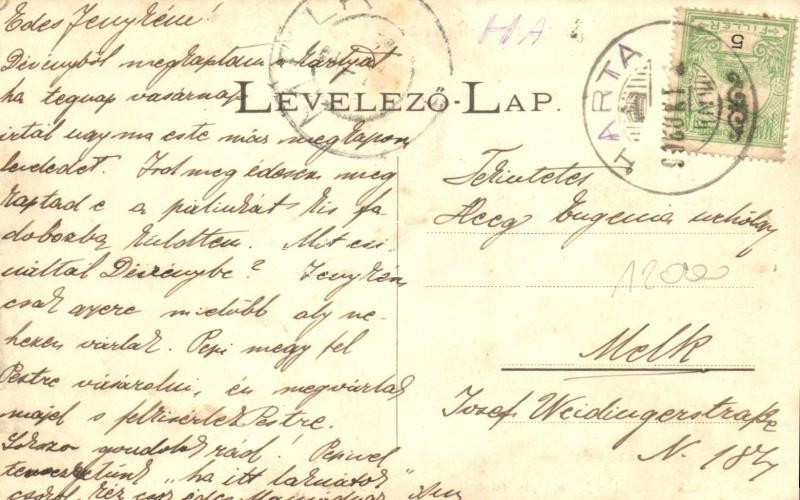 Edes Jenykém!
Dévényből megkaptam a kártyát
ha tegnap vasárnap
irtál ugy ma este már megkapom
leveledet. Ird meg édesem meg
kaptad e a pálinkát kis fa
dobozba küldtem. Mit csi
náltál Dévénybe? Jenykém
csak gyere mielőbb oly ne
hezen várlak. Pepi megy fel
Pestre vásárolni, én megvárlak
majd s felkisérlek Pestre.
Sokszor gondolok rád! Pepivel
"ha itt laknátok"
LEVELEZŐ-LAP.
TARTA
5
FILLÉR
Tekintetes
Heeg Eugenia urhölgy
1200
Melk
Josef Weidingerstraße
N. 187